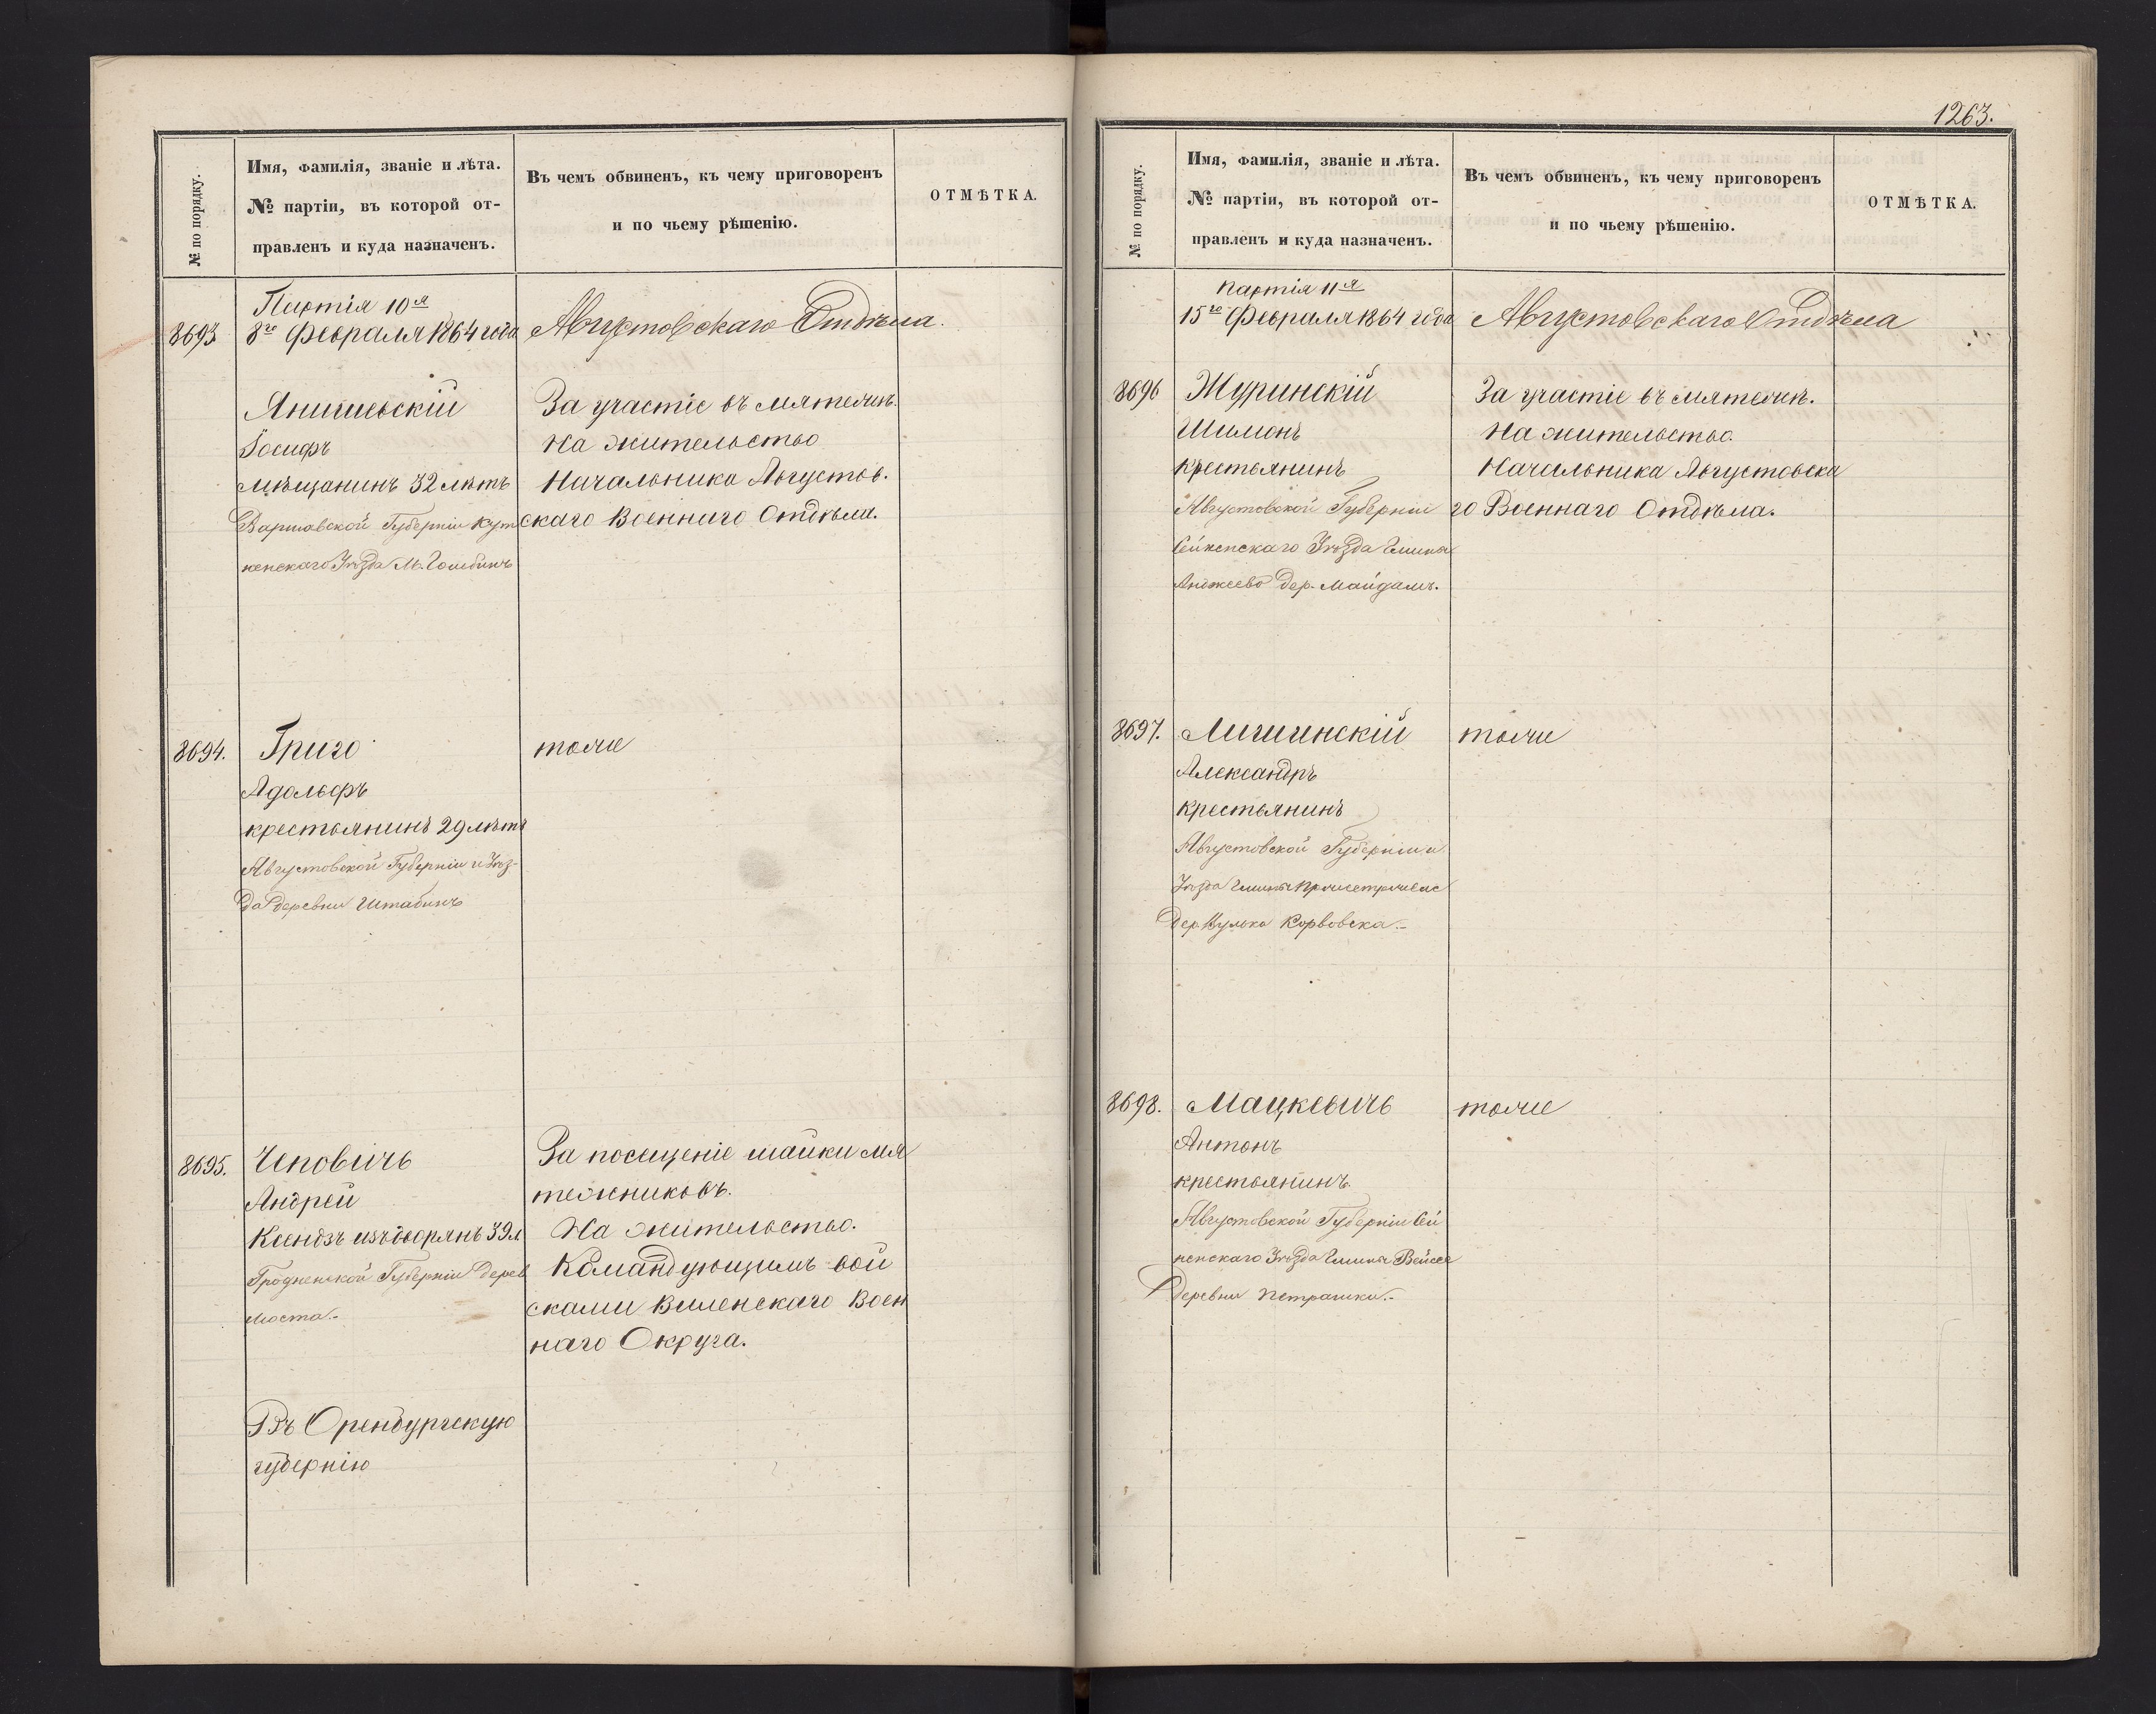 № по порядку.
Имя, фамилія, званіе и лѣта.
№ партіи, въ которой от-
правленъ и куда назначенъ.
Въ чемъ обвиненъ, къ чему приговоренъ
и по чьему рѣшенію.
ОТМѢТКА.
Партія 10я
8693
8го Февраля 1864 года
Августовскаго Отдѣла.
Янишевскій
Іосифъ
мѣщанинъ 32 лѣтъ
Варшавской Губерніи Кут
ненскаго Уѣзда М. Гомбинъ
За участіе въ мятежѣ.
На жительство
Начальника Августов.
скаго Военнаго Отдѣла.
8694.
Григо
Адольфъ
крестьянинъ 29 лѣтъ
Августовской Губерніи и Уѣз-
да деревни Штабинъ
тоже
8695.
Чеповичъ
Андрей
Ксендзъ изъ дворянъ 39 л
Гродненской Губерніи дерев
Моста.-
За посещеніе шайки мя
тежниковъ.
На жительство.
Командующимъ вой
сками Виленскаго Воен
наго Округа.
Въ Оренбургскую
губернію
1263.
№ по порядку.
Имя, фамилія, званіе и лѣта.
№ партіи, въ которой от-
правленъ и куда назначенъ.
Въ чемъ обвиненъ, къ чему приговоренъ
и по чьему рѣшенію.
ОТМѢТКА.
Партія 11я
15го Февраля 1864 года
Августовскаго Отдѣла
8696
Журинскій
Шимонъ
крестьянинъ
Августовской Губерніи
Сейненскаго Уѣзда Гмины
Анджеево дер. Майданъ.
За участіе въ мятежѣ.
На жительство.
Начальника Августовска
го Военнаго Отдѣла.
8697.
Александръ
крестьянинъ
Августовской Губерніи и
Уѣзда Гмины
дер. Вулька Корвовска.-
тоже
8698.
Мацкевичъ
Антонъ
крестьянинъ
Августовской Губерніи Сей
ненскаго Уѣзда Гмины Вейсее
деревни Петрашки.-
тоже